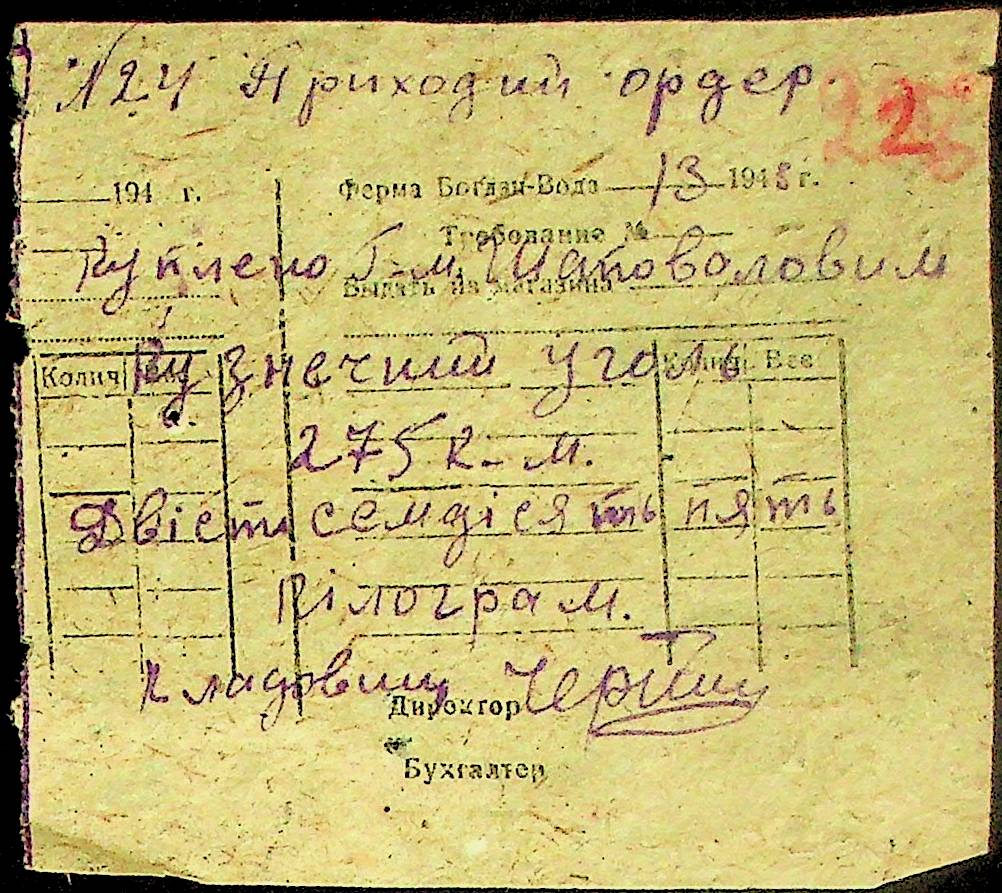 №24 Приходий ордер. 22
194 г. Ферма Боглан-Вода 13 1948 г.
Требование №
Куплено Г-м. Шаповаловим
Выдать из магазина
Кузнечний уголь
Колич Колич Все
275 к-м.
Двісти семдісять пять
Кілограм.
Кладовщ
Директор
Бухгалтер